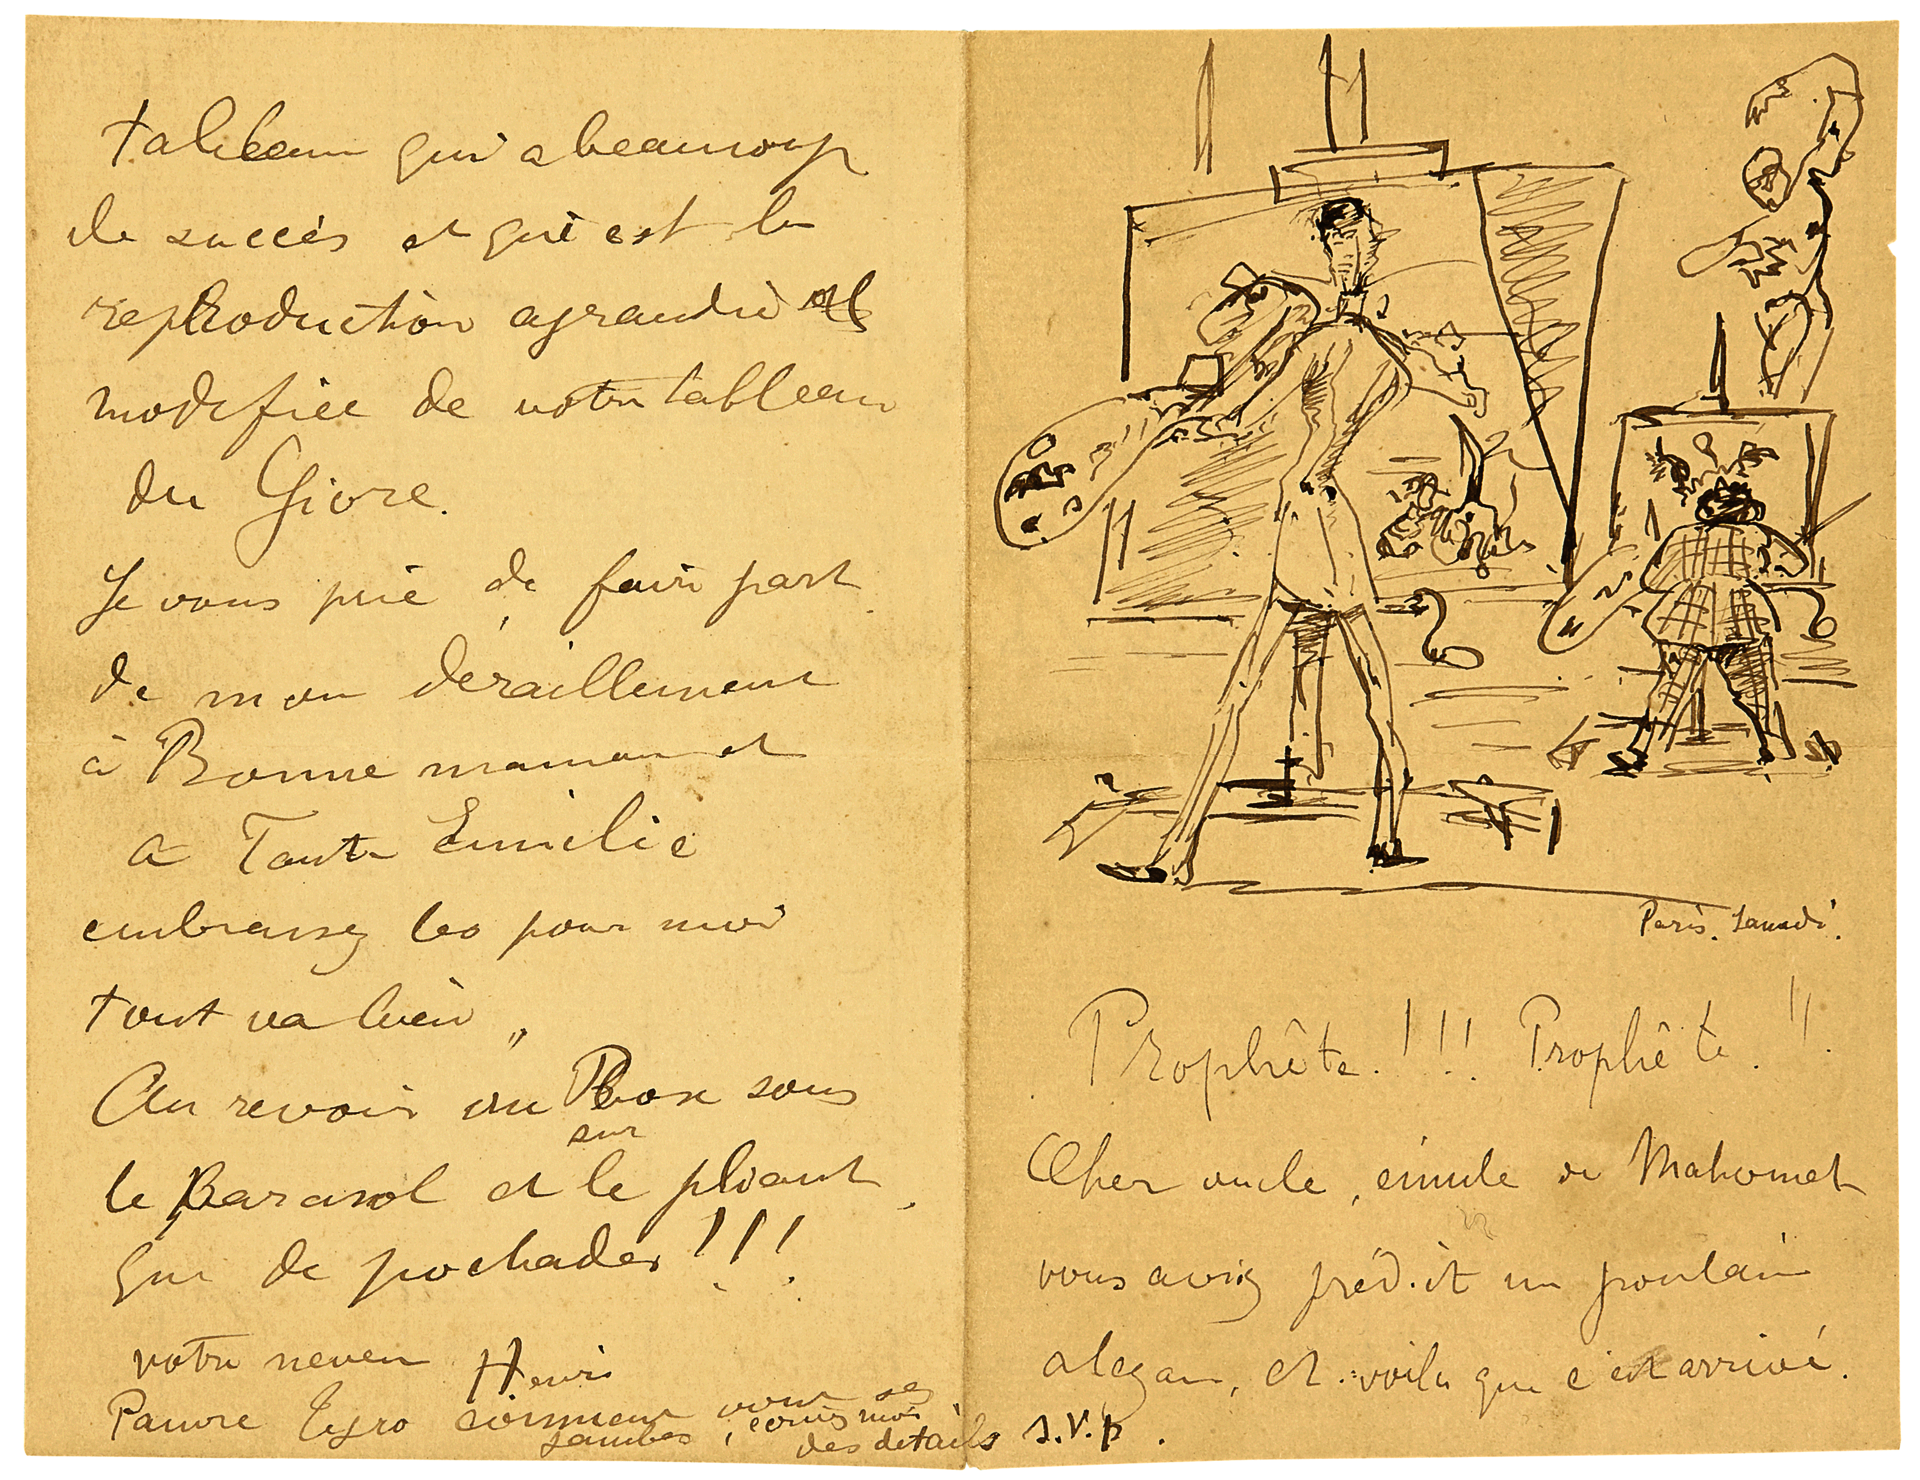 Paris. Samedi.
Prophête. !!! Prophête. !!
Cher oncle, émule de Mahomet
vous aviez prédit un poulain
alezan, et voila que c'est arrivé.
tableau qui a beaucoup
de succès et qui est la
reproduction agrandie et
modifiée de votre tableau
du Givre.
Je vous prie de faire part
de mon deraillement
à Bonne maman et
a Tante Emilie
embrassez les pour moi
tout va bien
Au revoir au Bosc sous
le Parasol et sur le pliant,
que de pochades !!!
votre neveu Henri
Pauvre Tyro comment vont ses
jambes, ecrivez moi
des details s.v.p.